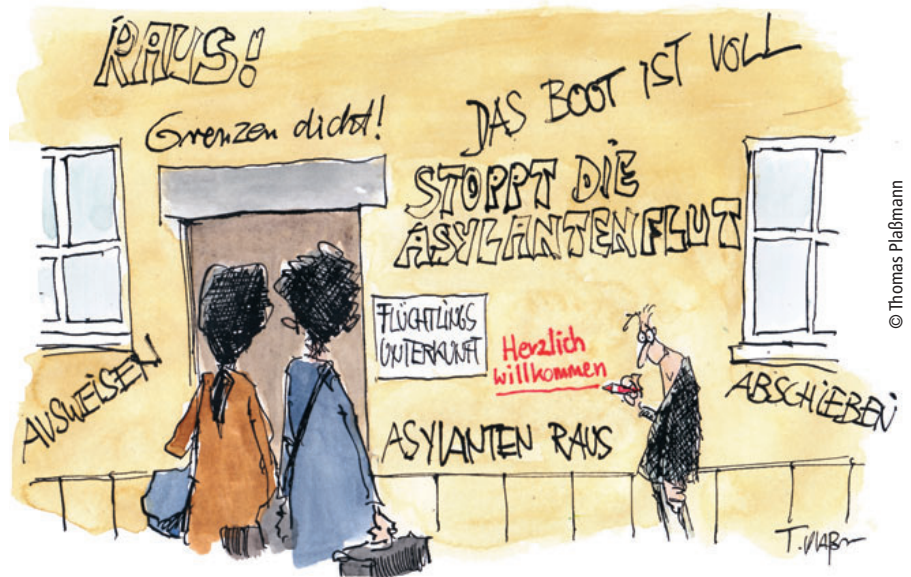 RAUS!
Grenzen dicht!
DAS BOOT IST VOLL
STOPPT DIE
ASYLANTENFLUT
FLÜCHTLINGS
UNTERKUNFT
Herzlich
willkommen
AUSWEISEN
ASYLANTEN RAUS
ABSCHIEBEN
T. Plaßm
© Thomas Plaßmann